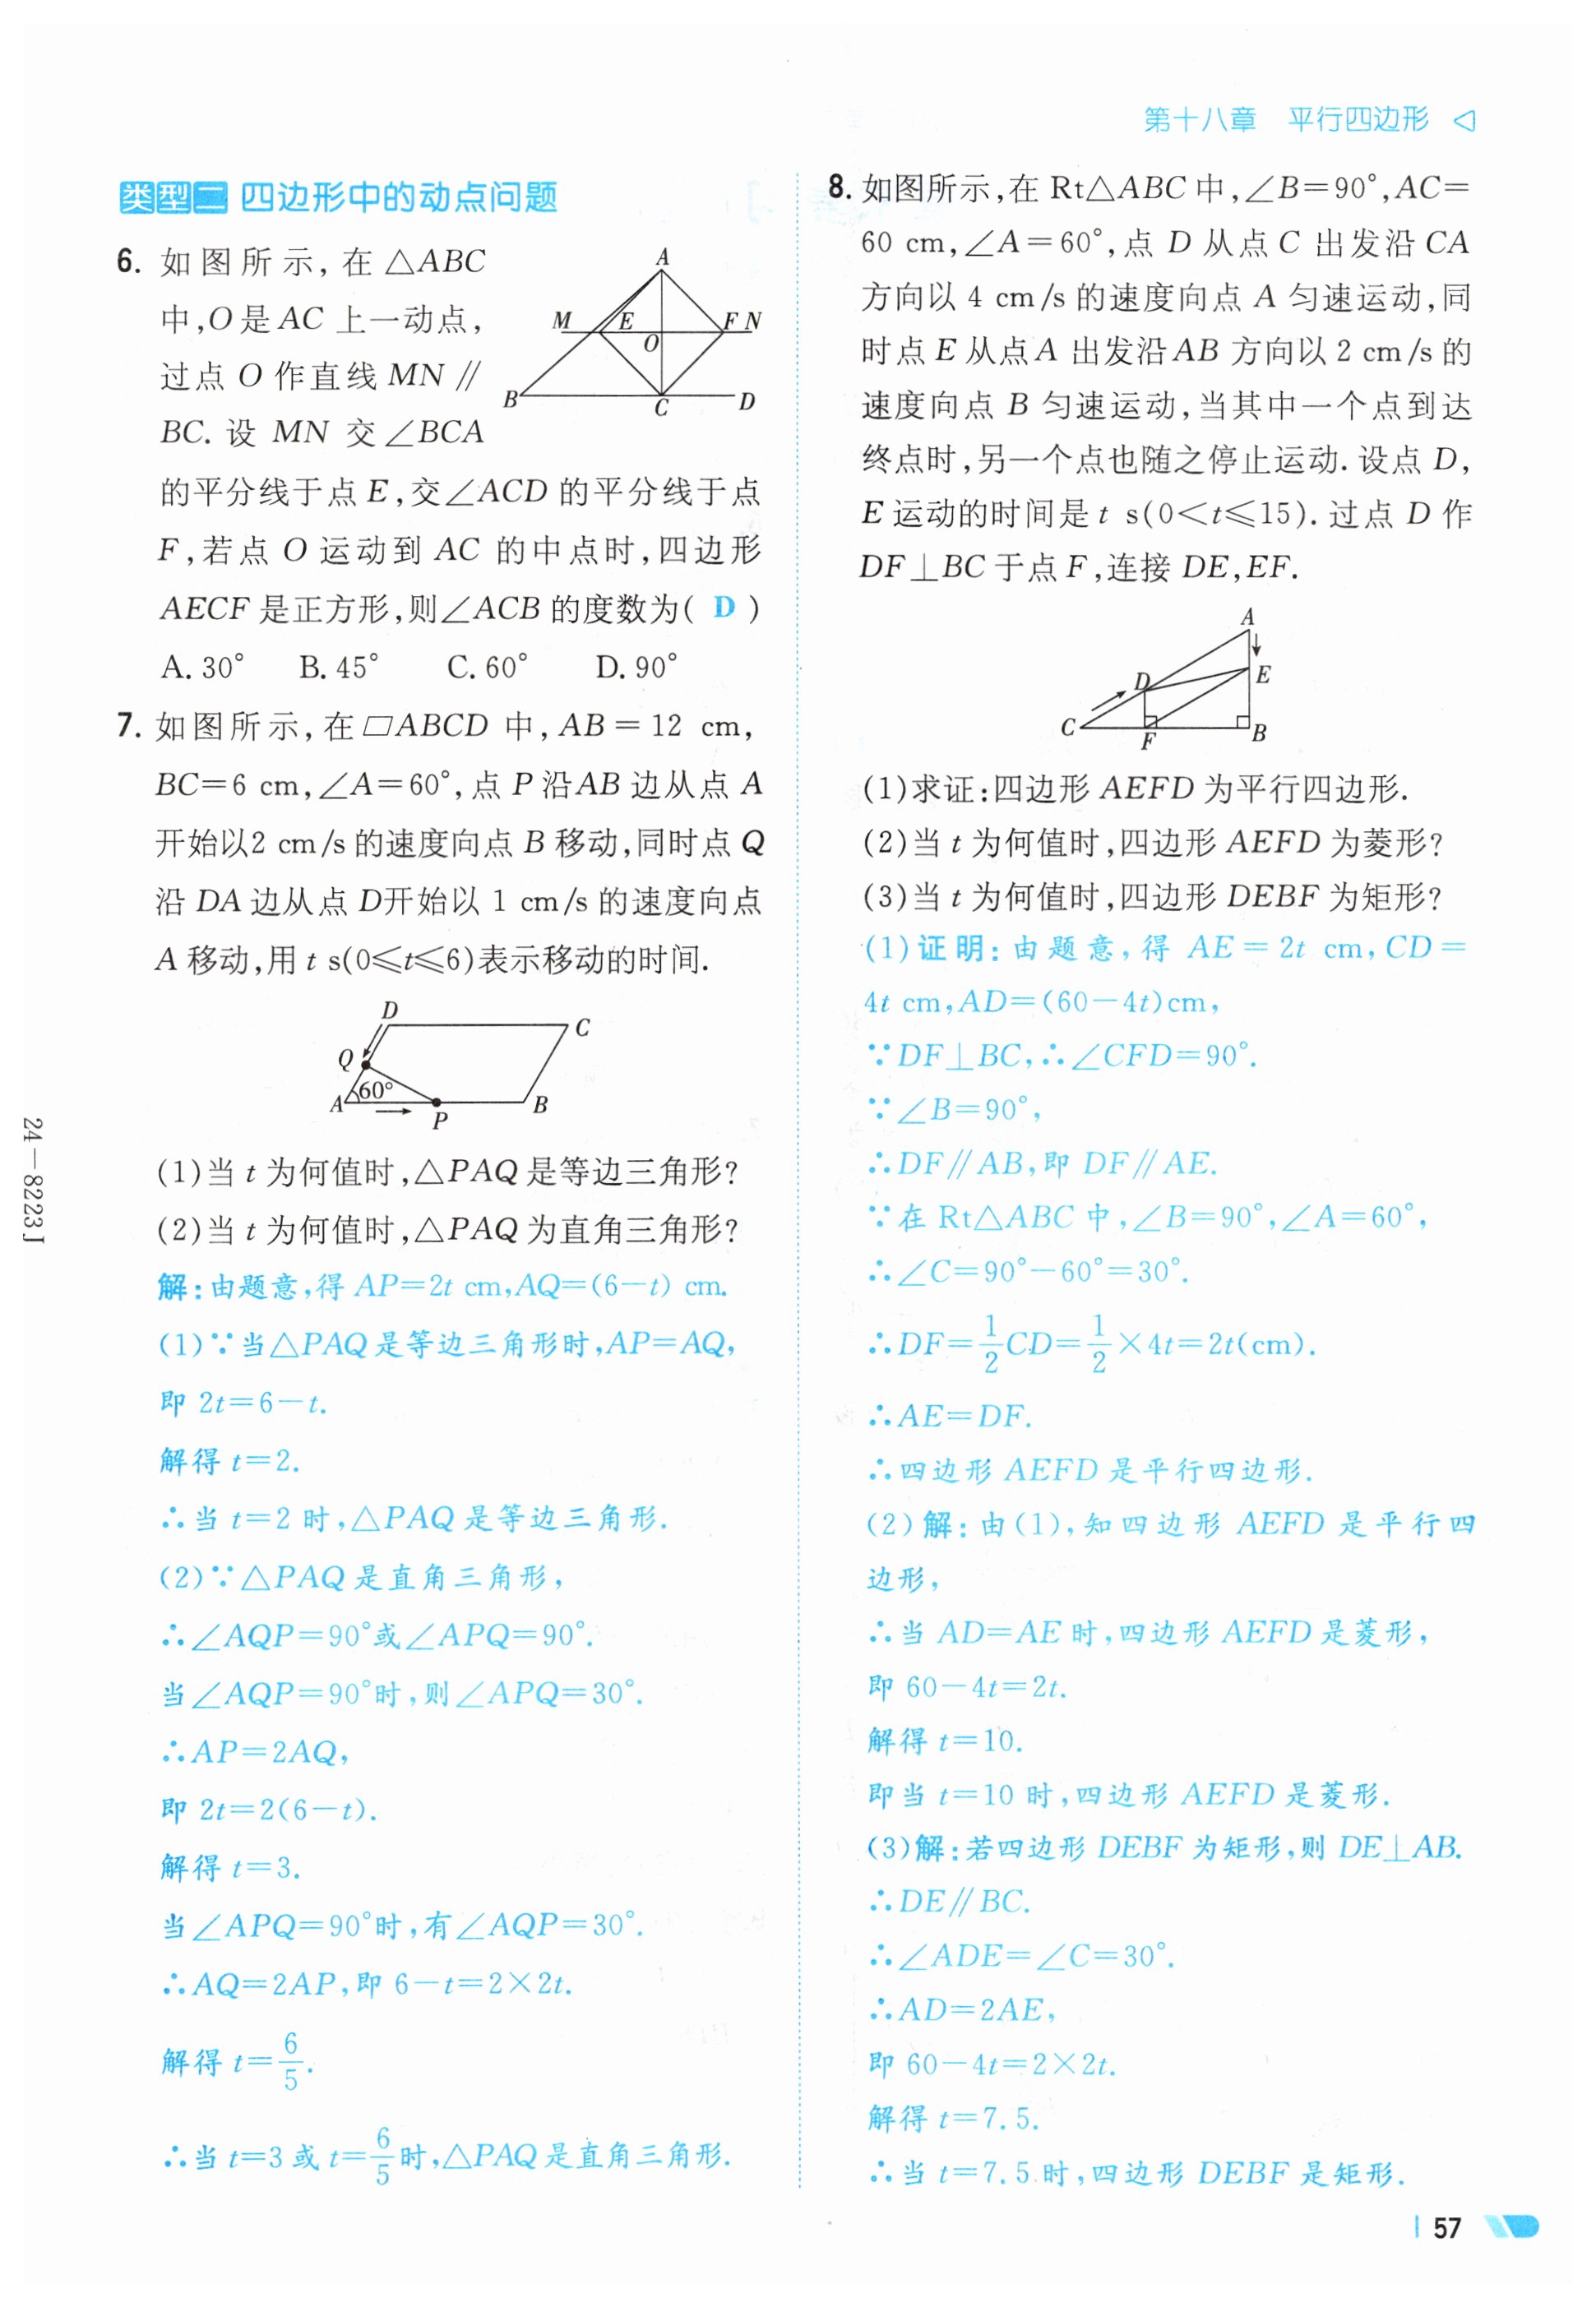 第十八章 平行四边形
类型二 四边形中的动点问题
6. 如图所示,在△ABC
中,O是AC上一动点,
过点O作直线MN∥
BC.设MN交∠BCA
的平分线于点E,交∠ACD的平分线于点
F,若点O运动到AC的中点时,四边形
AECF是正方形,则∠ACB的度数为( D )
A.30° B.45° C.60° D.90°
A
M E F N
O
B C D
7. 如图所示,在▱ABCD中,AB=12 cm,
BC=6 cm,∠A=60°,点P沿AB边从点A
开始以2 cm/s的速度向点B移动,同时点Q
沿DA边从点D开始以1 cm/s的速度向点
A移动,用t s(0≤t≤6)表示移动的时间.
D C
Q
60°
A P B
(1)当t为何值时,△PAQ是等边三角形?
(2)当t为何值时,△PAQ为直角三角形?
解:由题意,得AP=2t cm,AQ=(6-t) cm.
(1)∵当△PAQ是等边三角形时,AP=AQ,
即2t=6-t.
解得t=2.
∴当t=2时,△PAQ是等边三角形.
(2)∵△PAQ是直角三角形,
∴∠AQP=90°或∠APQ=90°.
当∠AQP=90°时,则∠APQ=30°.
∴AP=2AQ,
即2t=2(6-t).
解得t=3.
当∠APQ=90°时,有∠AQP=30°.
∴AQ=2AP,即6-t=2×2t.
解得t=6/5.
∴当t=3或t=6/5时,△PAQ是直角三角形.
24-8223J
8. 如图所示,在Rt△ABC中,∠B=90°,AC=
60 cm,∠A=60°,点D从点C出发沿CA
方向以4 cm/s的速度向点A匀速运动,同
时点E从点A出发沿AB方向以2 cm/s的
速度向点B匀速运动,当其中一个点到达
终点时,另一个点也随之停止运动.设点D,
E运动的时间是t s(0<t≤15).过点D作
DF⊥BC于点F,连接DE,EF.
A
D E
C F B
(1)求证:四边形AEFD为平行四边形.
(2)当t为何值时,四边形AEFD为菱形?
(3)当t为何值时,四边形DEBF为矩形?
(1)证明:由题意,得AE=2t cm,CD=
4t cm,AD=(60-4t)cm,
∵DF⊥BC,∴∠CFD=90°.
∵∠B=90°,
∴DF∥AB,即DF∥AE.
∵在Rt△ABC中,∠B=90°,∠A=60°,
∴∠C=90°-60°=30°.
∴DF=1/2CD=1/2×4t=2t(cm).
∴AE=DF.
∴四边形AEFD是平行四边形.
(2)解:由(1),知四边形AEFD是平行四
边形,
∴当AD=AE时,四边形AEFD是菱形,
即60-4t=2t.
解得t=10.
即当t=10时,四边形AEFD是菱形.
(3)解:若四边形DEBF为矩形,则DE⊥AB.
∴DE∥BC.
∴∠ADE=∠C=30°.
∴AD=2AE,
即60-4t=2×2t.
解得t=7.5.
∴当t=7.5时,四边形DEBF是矩形.
57